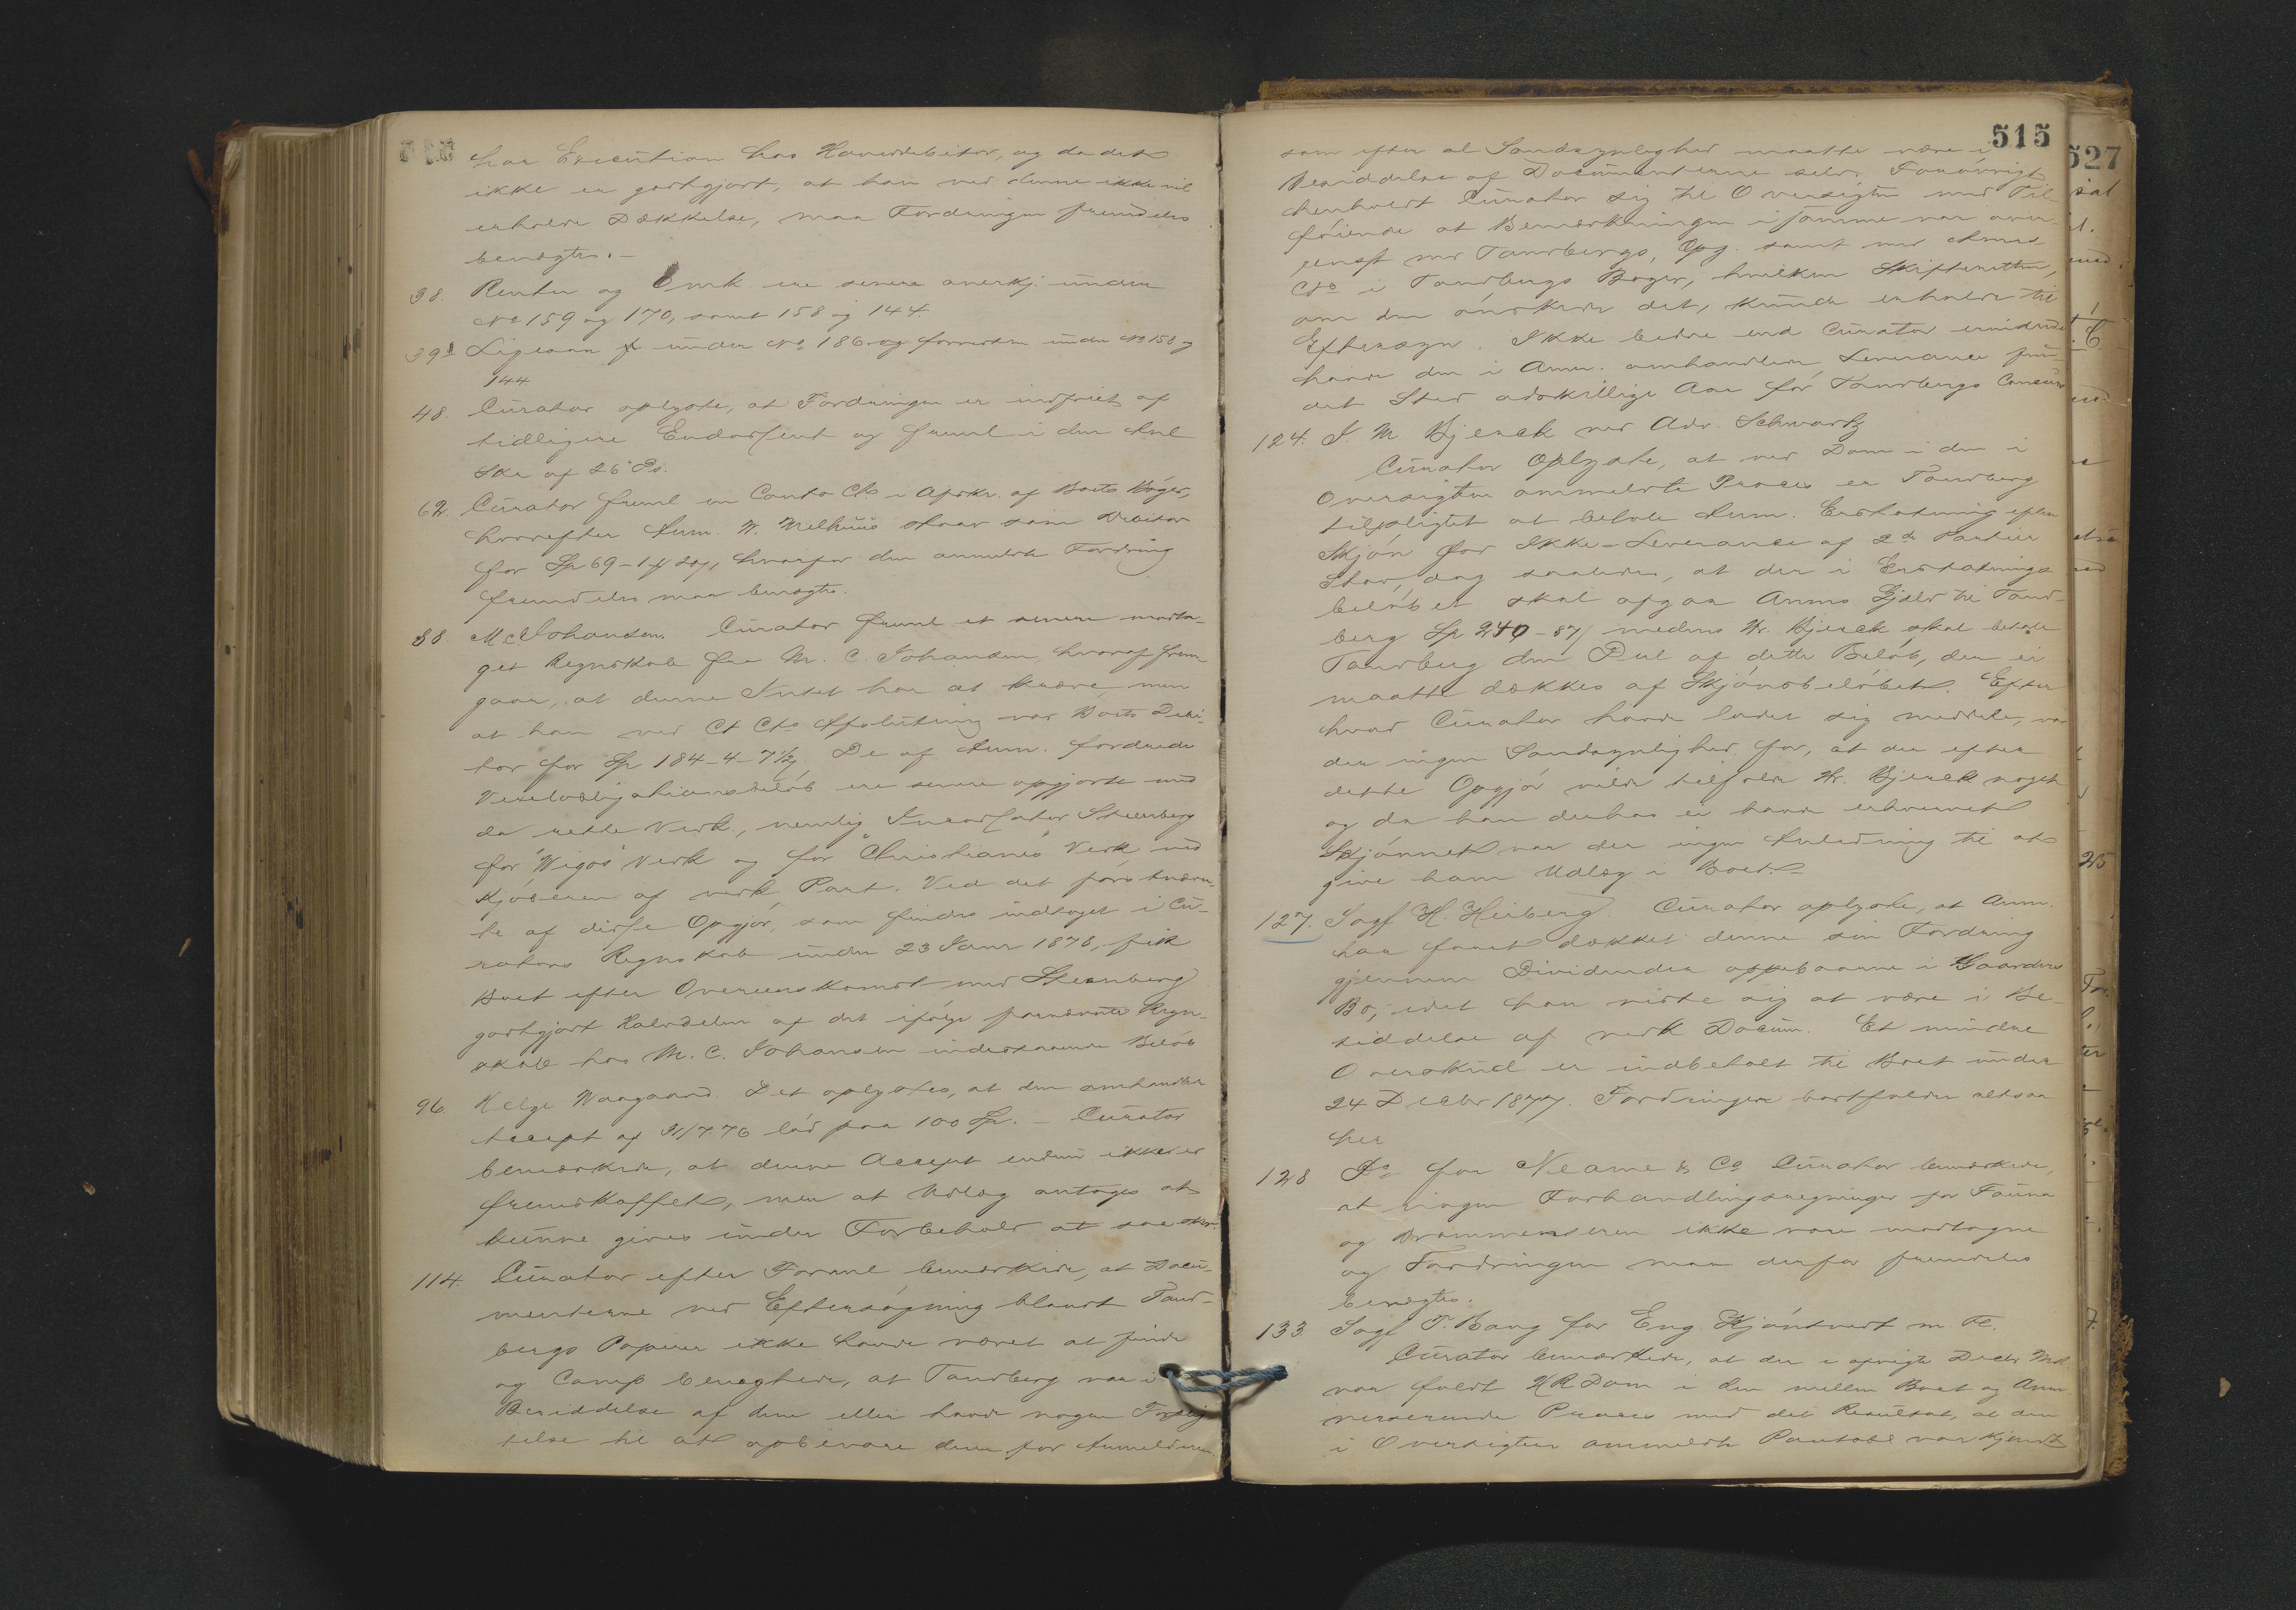 har Execution hos Hoveddebitor, og da det
ikke er godtgjort, at han ved denne ikke vil
erholde Dækkelse, maa Fordringen fremdeles
benægtes.-
38. Renter og Omk ere senere anerkj. under
No 159 og 170, samt 158 og 144.
39. Ligesaa under No 186 og forresten under No 158 og
144
48. Curator oplyste, at Fordringen er indfriet af
tidligere Endossent og freml i den
Ska af 26 Ds.
62. Curator freml en Conto Cto i Afskr. af Boets Bøger,
hvorefter Anm. W. Melhuus staar som Debitor
for Sp 69-1- , hvorfor den anmeldte Fordring
fremdeles maa benægtes.
88 M. C. Johansen. Curator freml et senere modta-
get Regnskab fra M. C. Johansen, hvoraf frem
gaar, at denne Intet har at kræve, men
at han ved Ct Cto Afslutning var Boets Debi-
tor for Sp 184-4-7½ De af Anm. fordrede
Vexelobligationsbeløb ere senere opgjorte med
de rette Vedk., nemlig Steenberg
for "Wigos" Verk og for "Christianes" Verk med
Kjøberen af vedk Part. Ved det førstnævn-
te af disse Opgjør, som findes indtaget i Cu-
rators Regnskab under 23 Janr 1878, fik
Boet efter Overenskomst med Steenberg
godtgjort Halvdelen af det ifølge fornævnte Regn-
skab hos M. C. Johansen indestaaende Beløb
96. Helge Waagaard. Det oplystes, at den omhandlede
Accept af 31/7 76 lød paa 100 Sp. - Curator
bemærkede, at denne Accept endnu ikke er
fremskaffet, men at Udlæg antoges at
kunne gives under Forbehold at saa sker.
114. Curator efter Formul bemærkede, at Docu-
menterne ved Eftersøgning blandt Tand-
bergs Papirer ikke havde været at finde
og Comp benegtede, at Tandberg var i
Besiddelse af dem eller havde nogen Forplig
telse til at opbevare dem for Anmelderen,
515
som efter al Sandsynlighed maatte være i
Besiddelse af Documenterne selv. Forøvrigt
henholdt Curator sig til Oversigten med Til-
føiende at Bemærkningen i samme var over-
ensst med Tandbergs Opg. samt med Anms
Cto i Tandbergs Bøger, hvilken Skifteretten,
om den ønskede det, kunde erholde til
Eftersyn. Ikke bedre end Curator erindrede
havde den i Anm. omhandlede Leverance fun-
det Sted adskillige Aar før Tandbergs Concurs
124. J. M. Bjerck ved Adv. Schwartz
Curator oplyste, at ved Dom i den i
Oversigten ommeldte Proces er Tandberg
tilpligtet at betale Anm. Erstatning efter
Skjøn for Ikke-Leverance af 2de Partier
Stav, dog saaledes, at der i Erstatnings
beløbet skal afgaa Anms Gjeld til Tand-
berg Sp 240-87/ medens Hr. Bjerck skal betale
Tandberg den Del af dette Beløb, der ei
maatte dækkes af Skjønsbeløbet. Efter
hvad Curator havde ladet sig meddele, var
der ingen Sandsynlighed for, at der efter
dette Opgjør vilde tilfalde Hr. Bjerck noget
og da han derhos ei havde erhvervet
Skjønnet var der ingen Anledning til at
give ham Udlæg i Boet.-
127. Sagf H. Heiberg. Curator oplyste, at Anm.
har faaet dækket denne sin Fordring
gjennem Dividenden oppebaarne i Gaarders
Bo, idet han viste sig at være i Be-
siddelse af vedk Docum. Et mindre
Overskud er indbetalt til Boet under
24 Decbr 1877. Fordringen bortfalder altsaa
her
128 Do for Neame & Co Curator bemærkede,
at nogen Forhandlingsregninger for Fauna
og Drammenseren ikke vare modtagne
og Fordringen maa derfor fremdeles
benægtes.
133. Sagf T. Bang for Eng. Skjøntvedt m. Fl.
Curator bemærkede, at der i afvigte Decbr Md.
var faldt HR Dom i den mellem Boet og Anm
verserende Proces med det Resultat, at den
i Oversigten ommeldte Pantobl var kjendt
527